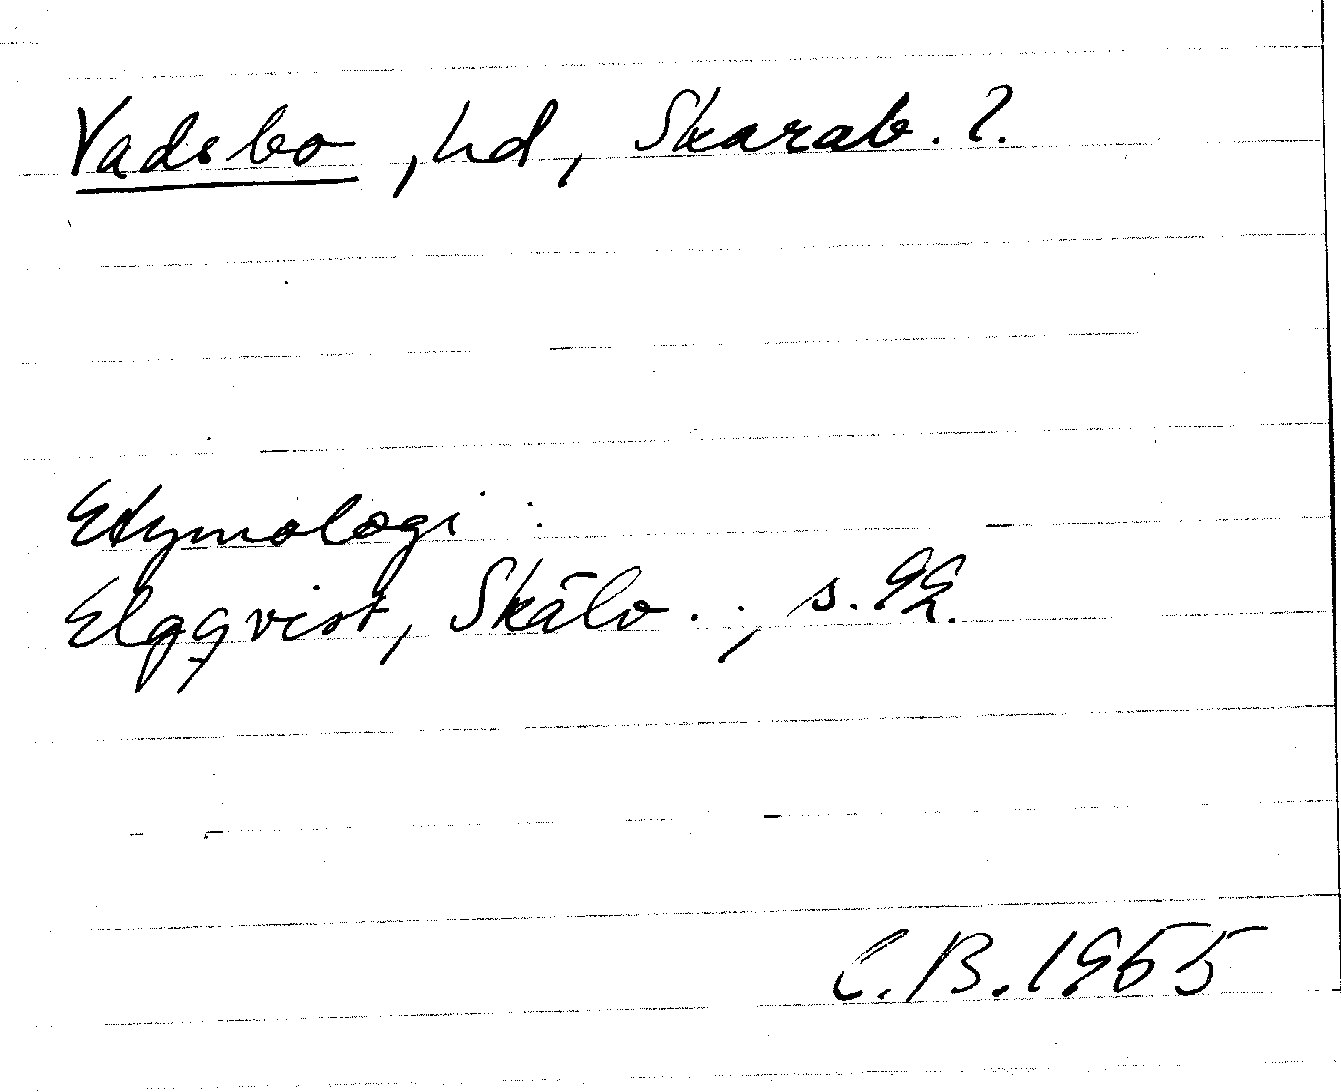 Vadsbo, hd, Skarab. l.
Etymologi:
Elgqvist, Skälv.., s. 92.
C.B. 1965